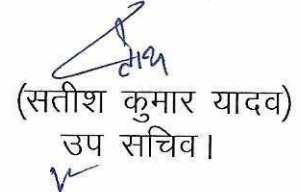 (सतीश कुमार यादव)
उप सचिव।